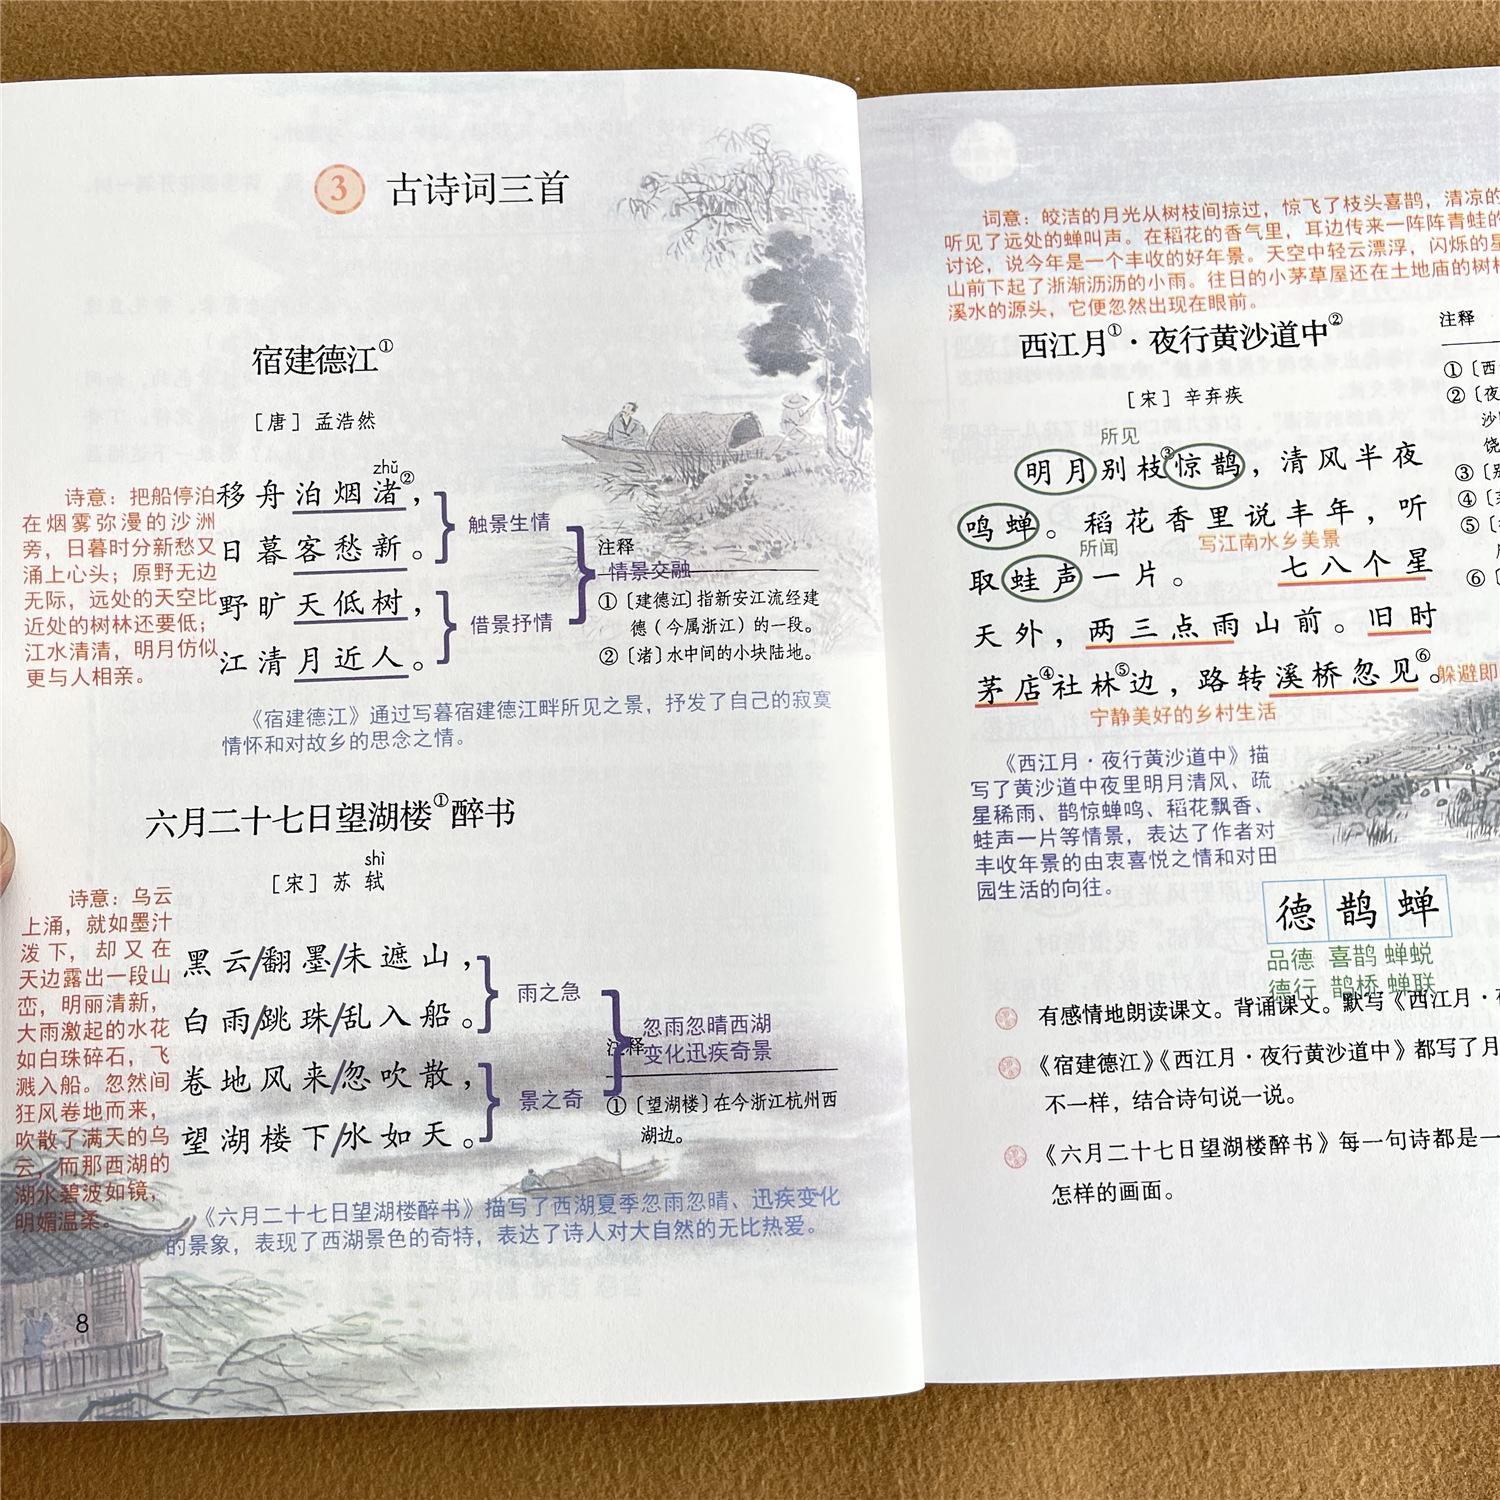 3 古诗词三首
宿建德江①
［唐］孟浩然
zhǔ
移舟泊烟渚②，
日暮客愁新。
野旷天低树，
江清月近人。
诗意：把船停泊
在烟雾弥漫的沙洲
旁，日暮时分新愁又
涌上心头；原野无边
无际，远处的天空比
近处的树林还要低；
江水清清，明月仿似
更与人相亲。
触景生情
借景抒情
情景交融
注释
①〔建德江〕指新安江流经建
德（今属浙江）的一段。
②〔渚〕水中间的小块陆地。
《宿建德江》通过写暮宿建德江畔所见之景，抒发了自己的寂寞
情怀和对故乡的思念之情。
六月二十七日望湖楼①醉书
shì
［宋］苏轼
黑云/翻墨/未遮山，
白雨/跳珠/乱入船。
卷地风来/忽吹散，
望湖楼下/水如天。
诗意：乌云
上涌，就如墨汁
泼下，却又在
天边露出一段山
峦，明丽清新，
大雨激起的水花
如白珠碎石，飞
溅入船。忽然间
狂风卷地而来，
吹散了满天的乌
云，而那西湖的
湖水碧波如镜，
明媚温柔。
雨之急
景之奇
忽雨忽晴西湖
变化迅疾奇景
注释
①〔望湖楼〕在今浙江杭州西
湖边。
《六月二十七日望湖楼醉书》描写了西湖夏季忽雨忽晴、迅疾变化
的景象，表现了西湖景色的奇特，表达了诗人对大自然的无比热爱。
8
词意：皎洁的月光从树枝间掠过，惊飞了枝头喜鹊，清凉的
听见了远处的蝉叫声。在稻花的香气里，耳边传来一阵阵青蛙的
讨论，说今年是一个丰收的好年景。天空中轻云漂浮，闪烁的星
山前下起了淅渐沥沥的小雨。往日的小茅草屋还在土地庙的树林
溪水的源头，它便忽然出现在眼前。
西江月①·夜行黄沙道中②
［宋］辛弃疾
所见
明月别枝③惊鹊，清风半夜
鸣蝉。稻花香里说丰年，听
所闻
写江南水乡美景
取蛙声一片。七八个星
天外，两三点雨山前。旧时
茅店④社林⑤边，路转溪桥忽见⑥。
躲避即
宁静美好的乡村生活
注释
①〔西
②〔夜
沙
饶
③〔别
④
⑤
⑥〔
《西江月·夜行黄沙道中》描
写了黄沙道中夜里明月清风、疏
星稀雨、鹊惊蝉鸣、稻花飘香、
蛙声一片等情景，表达了作者对
丰收年景的由衷喜悦之情和对田
园生活的向往。
德 鹊 蝉
品德 喜鹊 蝉蜕
德行 鹊桥 蝉联
有感情地朗读课文。背诵课文。默写《西江月·夜
《宿建德江》《西江月·夜行黄沙道中》都写了月
不一样，结合诗句说一说。
《六月二十七日望湖楼醉书》每一句诗都是一
怎样的画面。